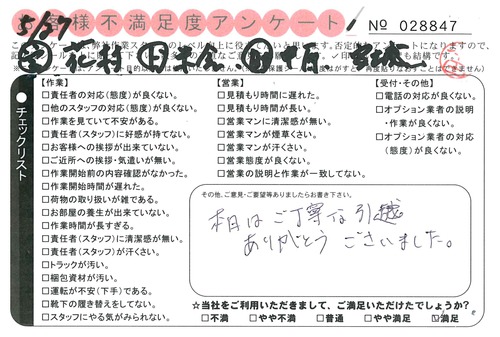 5/27
お客様不満足度アンケート
No 028847
チェックリスト
【作業】
□責任者の対応(態度)が良くない。
□他のスタッフの対応(態度)が良くない。
□作業を見ていて不安がある。
□責任者(スタッフ)に好感が持てない。
□お客様への挨拶が出来ていない。
□ご近所への挨拶・気遣いが無い。
□作業開始前の内容確認がなかった。
□作業開始時間が遅れた。
□荷物の取り扱いが雑である。
□お部屋の養生が出来ていない。
□作業時間が長すぎる。
□責任者(スタッフ)に清潔感が無い。
□責任者(スタッフ)が汗くさい。
□トラックが汚い。
□梱包資材が汚い。
□運転が不安(下手)である。
□靴下の履き替えをしてない。
□スタッフにやる気がみられない。
【営業】
□見積もり時間に遅れた。
□見積もり時間が長い。
□営業マンに清潔感が無い。
□営業マンが煙草くさい。
□営業マンが汗くさい。
□営業態度が良くない。
□営業の説明と作業が一致してない。
【受付・その他】
□電話の対応が良くない。
□オプション業者の説明
・作業が良くない。
□オプション業者の対応
(態度)が良くない。
その他、ご意見・ご要望等ありましたらお書き下さい。
本日はご丁寧な引越
ありがとうございました。
☆当社をご利用いただきまして、ご満足いただけたでしょうか?
□不満 □やや不満 □普通 □やや満足 ☑満足